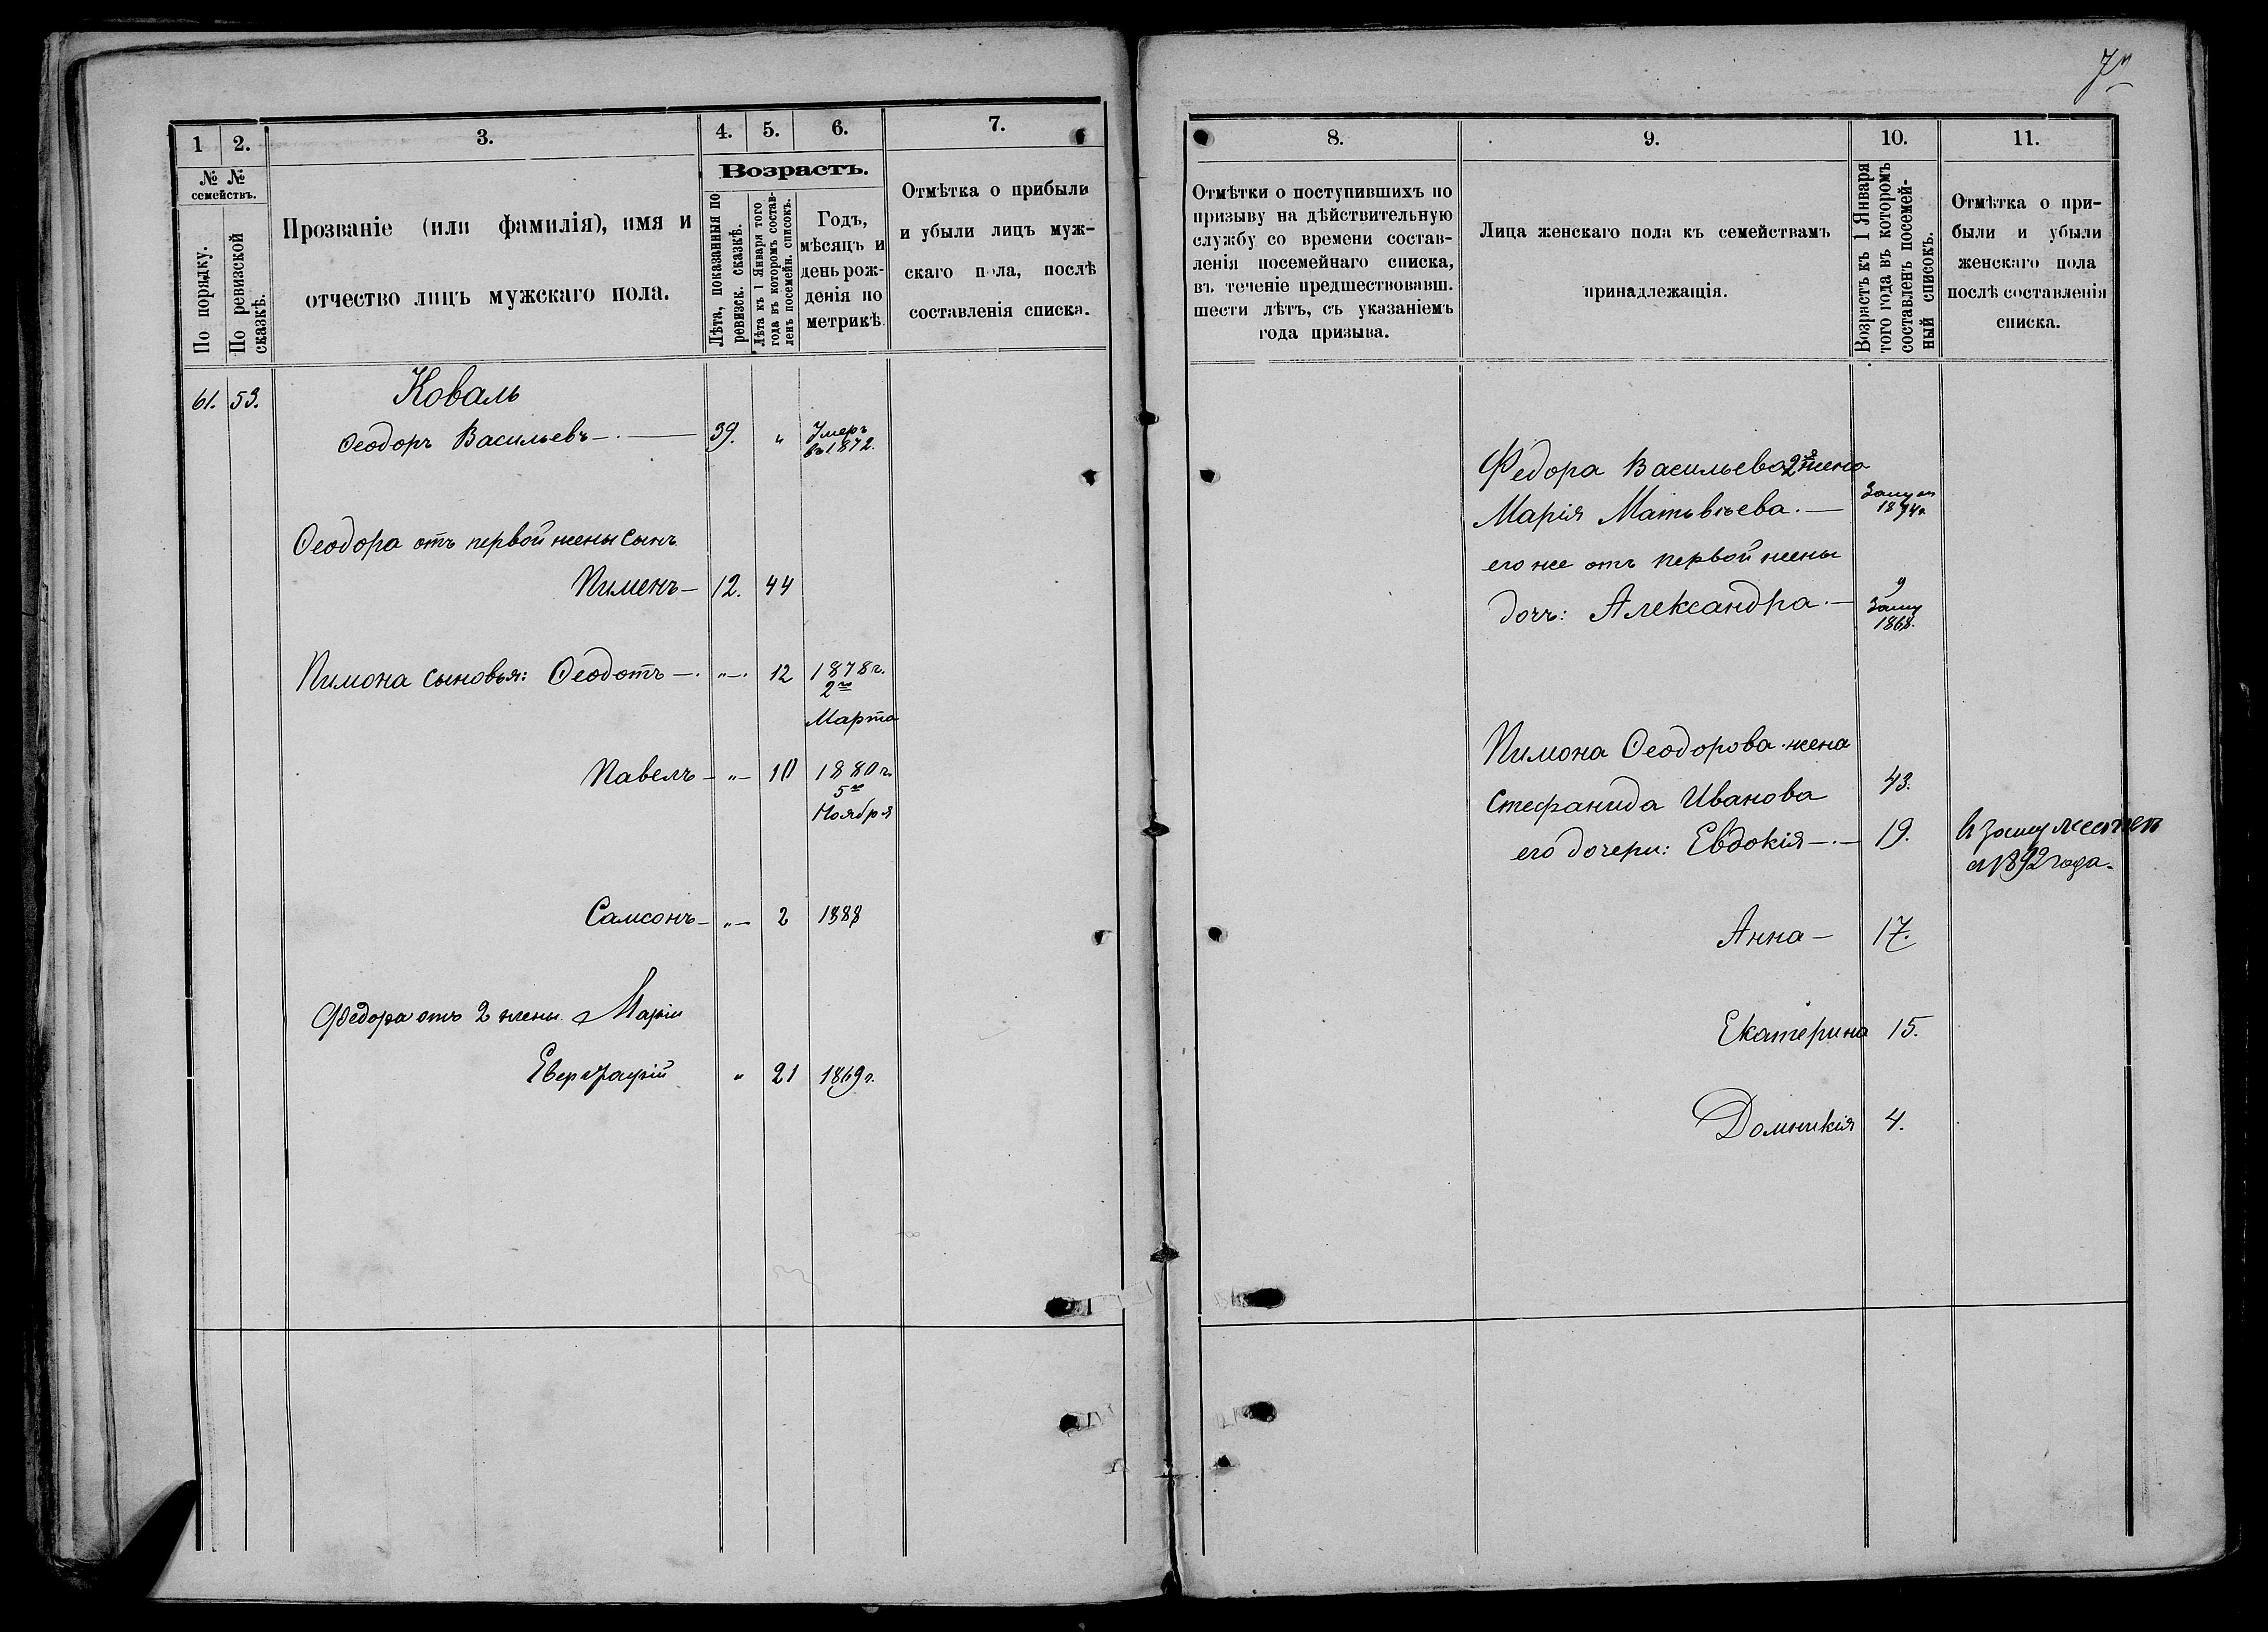 1 2. 3. 4. 5. 6. 7.
№ № семействъ.
По порядку.
По ревизской сказкѣ.
Прозваніе (или фамилія), имя и
отчество лицъ мужскаго пола.
Возрастъ.
Лѣта, показанныя по
ревизск. сказкѣ.
Лѣта къ 1 Января того
года въ которомъ состав-
ленъ посемейн. списокъ.
Годъ,
мѣсяцъ и
день рож-
денія по
метрикѣ
Отмѣтка о прибыли
и убыли лицъ муж-
скаго пола, послѣ
составленія списка.
61. 53. Коваль
Ѳеодоръ Васильевъ — 39. „ Умеръ
въ 1872.
Ѳеодора отъ первой жены сынъ
Пименъ — 12. 44
Пимона сыновья: Ѳеодотъ — „ — 12 1878 г.
2го
Марта
Павелъ — „ — 10 1880 г.
5го
Ноября
Самсонъ — „ — 2 1888
Федора отъ 2 жены Маріи
„ 21 1869 г.
8. 9. 10. 11.
Отмѣтки о поступившихъ по
призыву на дѣйствительную
службу со времени состав-
ленія посемейнаго списка,
въ теченіе предшествовавш.
шести лѣтъ, съ указаніемъ
года призыва.
Лица женскаго пола къ семействамъ
принадлежащія.
Возрастъ къ 1 Января
того года въ которомъ
составленъ посемей-
ный списокъ.
Отмѣтка о при-
были и убыли
женскаго пола
послѣ составленія
списка.
Федора Васильева 2я жена
Марія Матвѣева. —
1874 г.
его же отъ первой жены
дочь: Александра. —
Заму
1868.
Пимона Ѳеодорова жена
Стефанида Иванова 43.
его дочери: Евдокія — . — 19. въ замужестве
съ 1892 года.
Анна — 17.
Екатерина 15.
Домникія 4.